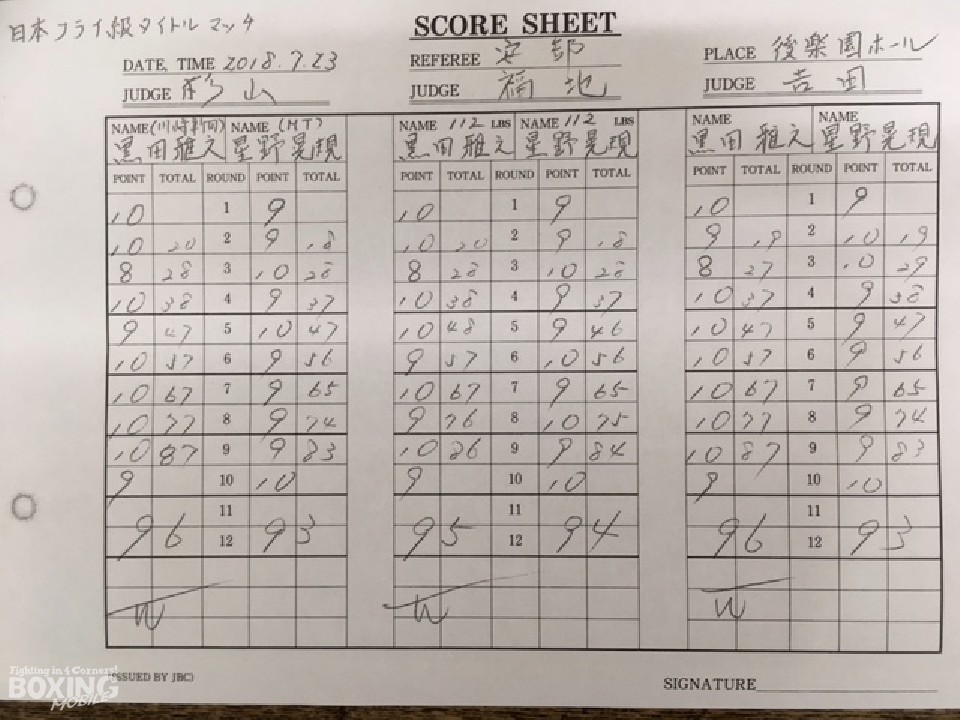 日本フライ級タイトルマッチ
SCORE SHEET
DATE, TIME 2018.7.23 REFEREE 安部 PLACE 後楽園ホール
JUDGE 杉山 JUDGE 福地 JUDGE 吉田
NAME (川崎新田) NAME (MT) NAME 112 LBS NAME 112 LBS NAME NAME
黒田雅之 星野晃規 黒田雅之 星野晃規 黒田雅之 星野晃規
POINT TOTAL ROUND POINT TOTAL POINT TOTAL ROUND POINT TOTAL POINT TOTAL ROUND POINT TOTAL
10 1 9 10 1 9 10 1 9
10 20 2 9 18 10 20 2 9 18 9 19 2 10 19
8 28 3 10 28 8 28 3 10 28 8 27 3 10 29
10 38 4 9 37 10 38 4 9 37 10 37 4 9 38
9 47 5 10 47 10 48 5 9 46 10 47 5 9 47
10 57 6 9 56 9 57 6 10 56 10 57 6 9 56
10 67 7 9 65 10 67 7 9 65 10 67 7 9 65
10 77 8 9 74 9 76 8 10 75 10 77 8 9 74
10 87 9 9 83 10 86 9 9 84 10 87 9 9 83
9 10 10 9 10 10 9 10 10
11 11 11
96 12 93 95 12 94 96 12 93
W W W
ISSUED BY JBC) SIGNATURE
Fighting in 4 Corners!
BOXING
MOBILE